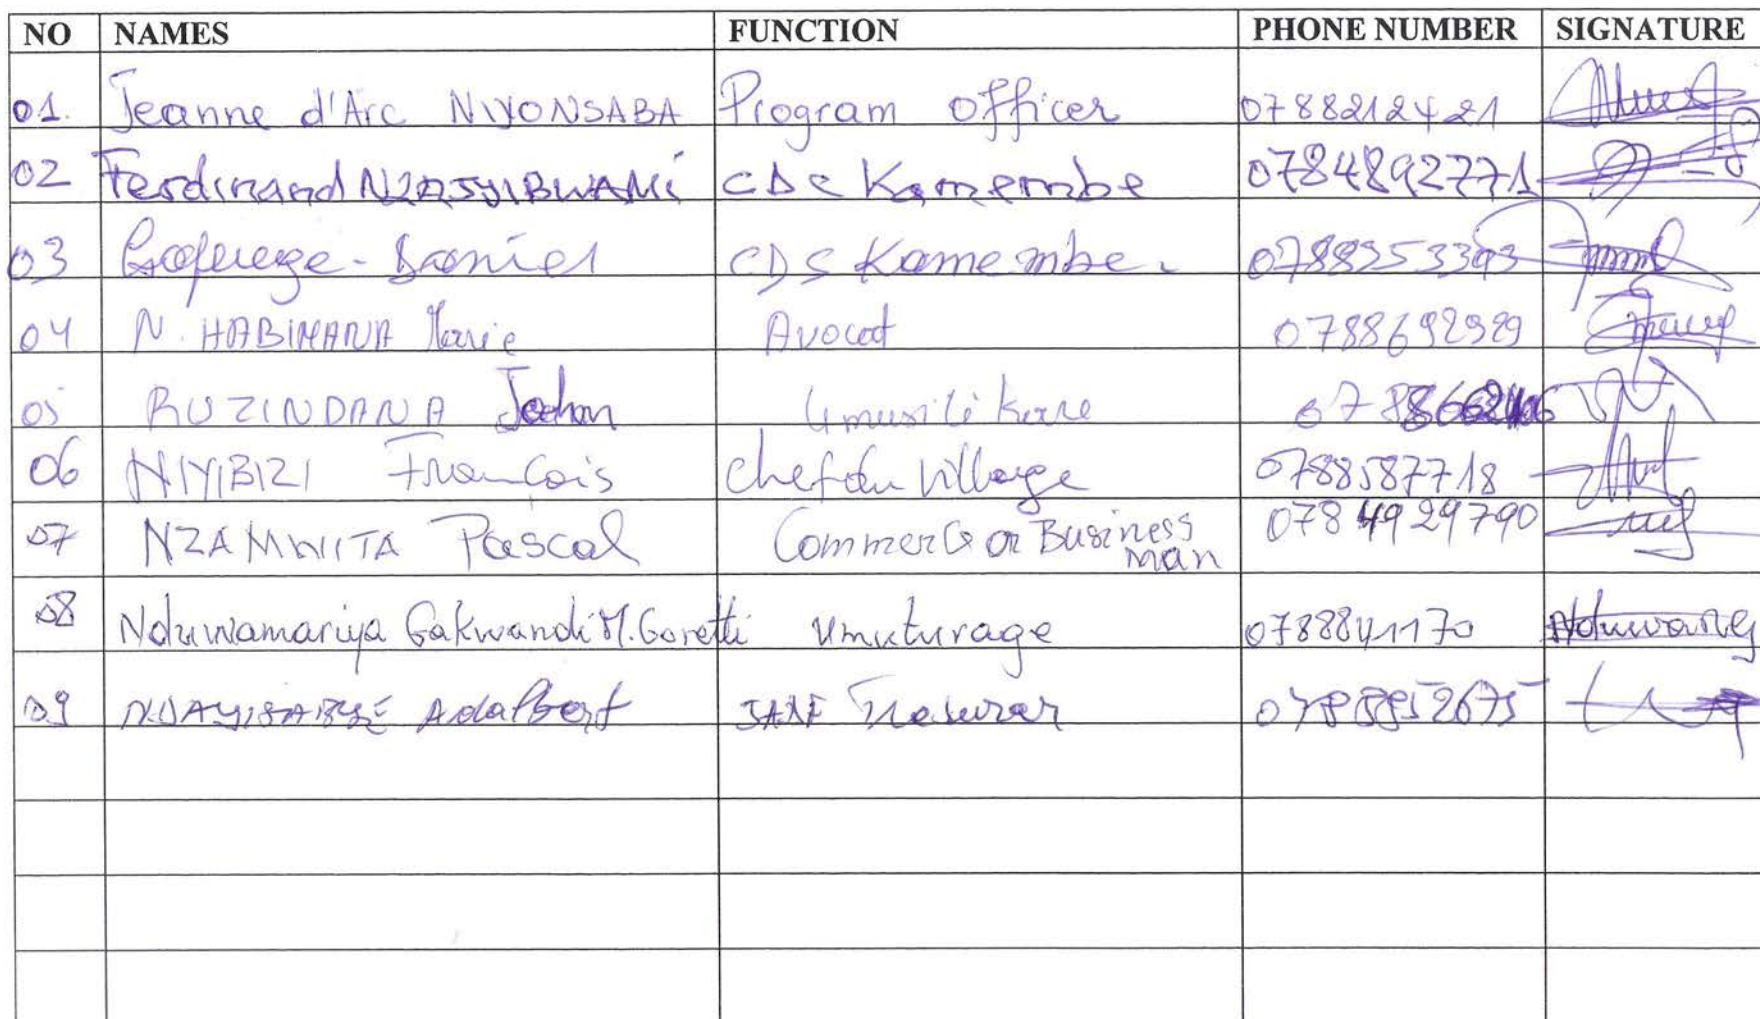 NO NAMES FUNCTION PHONE NUMBER SIGNATURE
01. Jeanne d'Arc NIYONSABA Program Officer 0788212421
02 Ferdinand NZASYIBWAMI CDC Kamembe 0784892771
03 Daniel CDS Kamembe. 0788353393
04 N. HABIMANA Marie Avocat 0788692929
05 RUZINDANA Umusilikare
06 NIYIBIZI François Chef du Village 0788587718
07 NZAMWITA Pascal Commerce or Business man 0784929790
08 Nduwamariya Gakwandi M. Goretti Umuturage 0788841170
09 Adalbert 0788852675